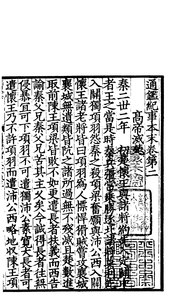 通鑑紀事本末卷第二
高帝滅楚
秦二世二年初楚懷王與諸將約先入定關中
者王之當是時秦兵彊常乘勝逐北諸將莫利先
入關獨項羽怨秦之殺項梁奮願與沛公西入關
懷王諸老將皆曰項羽為人慓悍猾賊嘗攻襄城
襄城無遺類皆阬之諸所過無不殘滅且楚數進
取前陳王項梁皆敗不如更遣長者扶義而西告
諭秦父兄秦父兄苦其主久矣今誠得長者往無
侵暴宜可下項羽不可遣獨沛公素寬大長者可
遣懷王乃不許項羽而遣沛公西略地收陳王項